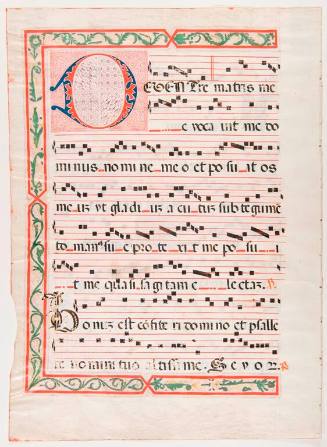 DE VENTre matris me
e voca vit me do
minus no mi ne me o et po su it os
me uz vt gladi uz a cu tuz sub tegume
to man su e pro te xi t me po su i
t me quasi sa git tam e lectaz.
Bonuz est cōfite ri domino et psalle
re nomini tuo altissime. Sevor.